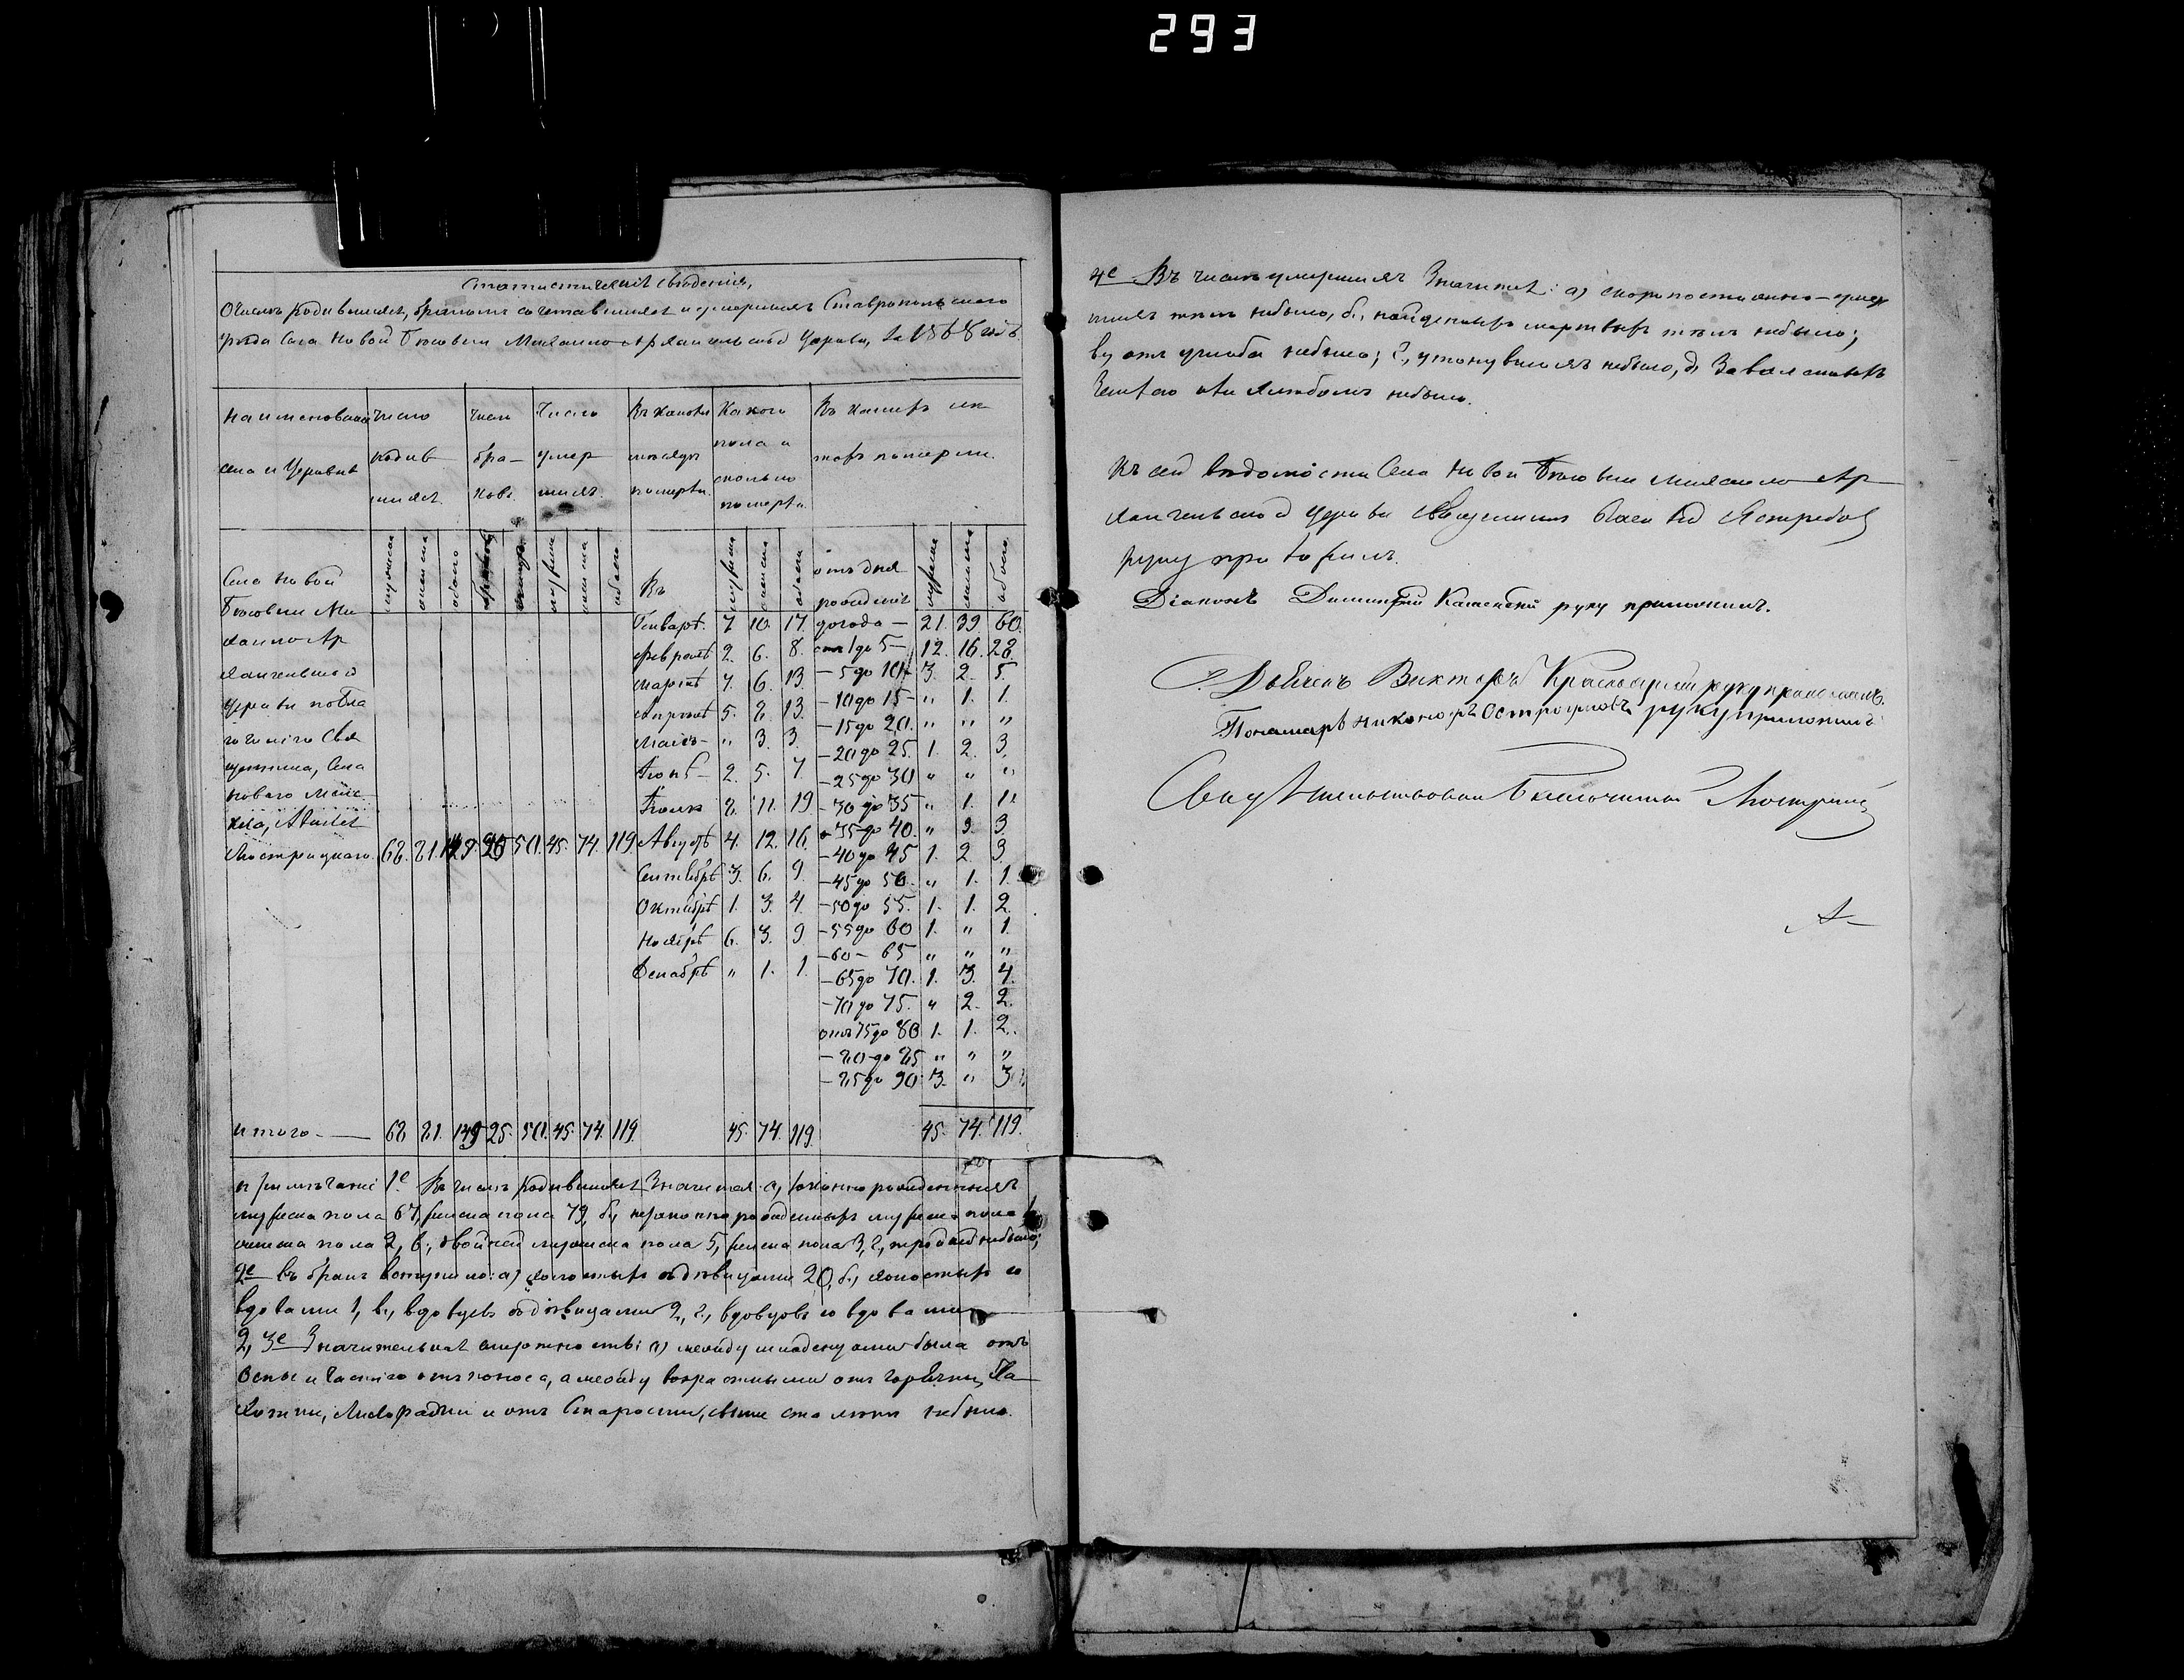 293
Статистическія свѣденія,
О числѣ родившихся, бракомъ сочетавшихся и умершихъ Ставропольскаго
уѣзда Села Новой Бюсовки Михаило-Архангельской Церкви, за 1868 годъ
Наименованіе Число Число Число Въ какомъ Какого Въ какихъ лѣ-
села и Церкви родив- бра- умер- мѣсяцѣ пола и тахъ померли.
шихся. ковъ. шихъ. померли. сколько
померли.
мужеска женска обоего мужеска женска обоего Въ мужеска женска обоего отъ дня рожденія мужеска женска обоего
Села Новой
Бюсовки Ми-
хаило-Ар-
хангельской
Церкви побла-
гочинію Свя-
щенника, Села
Новаго
Люстрицкаго 68. 81. 149. 25 50. 45. 74. 119.
Генварѣ. 7. 10. 17. до года — 21. 39. 60.
Февралѣ 2. 6. 8. отъ 1 до 5 — 12. 16. 28.
Мартѣ 7. 6. 13. — 5 до 10 3. 2. 5.
Апрѣлѣ 5. 8. 13. — 10 до 15 — „ 1. 1.
Маіѣ — „ 3. 3. — 15 до 20. „ „ „
Іюнѣ — 2. 5. 7. — 20 до 25. 1. 2. 3.
Іюлѣ 8. 11. 19 — 25 до 30 „ „ „
Августѣ 4. 12. 16. — 30 до 35 „ 1. 1.
Сентябрѣ 3. 6. 9. — 35 до 40. „ 3. 3.
Октябрѣ 1. 3. 4. — 40 до 45 1. 2. 3.
Ноябрѣ 6. 3. 9. — 45 до 50. „ 1. 1.
Декабрѣ „ 1. 1. — 50 до 55. 1. 1. 2.
— 55 до 60 1. „ 1.
— 60 — 65 „ „ „
— 65 до 70. 1. 3. 4.
— 70 до 75. „ 2. 2.
отъ 75 до 80 1. 1. 2.
— 80 до 85 „ „ „
— 85 до 90 3. „ 3.
Итого — 68 81. 149 25. 50. 45. 74. 119. 45. 74. 119. 45. 74. 119.
Примѣчаніе 1е. Въ числѣ родившихся Значится: а, законнорожденныхъ
мужеска пола 67, женска пола 79, б, незаконнорожденныхъ мужеска пола 1,
женска пола 2, в, двойней мужеска пола 5, женска пола 3, г, тройней небыло;
2е въ бракъ вступило: а) холостыхъ съ дѣвицами 20, б, холостыхъ со
вдовами 1, в, вдовцевъ съ дѣвицами 2, г, вдовцовъ со вдовами
2, 3е Значительная смертность: а) между младенцами была отъ
Оспы и частію отъ поноса, а между возрастными отъ горячки, Ча-
хотки, Лихорадки и отъ Старости, свыше ста лѣтъ небыло.
4е Въ числѣ умершихъ Значится: а) скоропостижно-умер-
шихъ небыло, б, найденныхъ мертвыхъ тѣлъ небыло;
в, отъ ушиба небыло; г, утонувшихъ небыло, д, Заваленныхъ
Землею небыло.
Къ сей вѣдомости Села Новой Бюсовки Михаило-Ар-
хангельской церкви Священникъ Ястребовъ
руку приложилъ.
Діаконъ Димитрій Каменскій руку приложилъ.
Дьячекъ Викторъ руку приложилъ.
Пономарь Никаноръ Остроумовъ руку приложилъ
Свидѣтельствовалъ Благочинный Люстрицкій